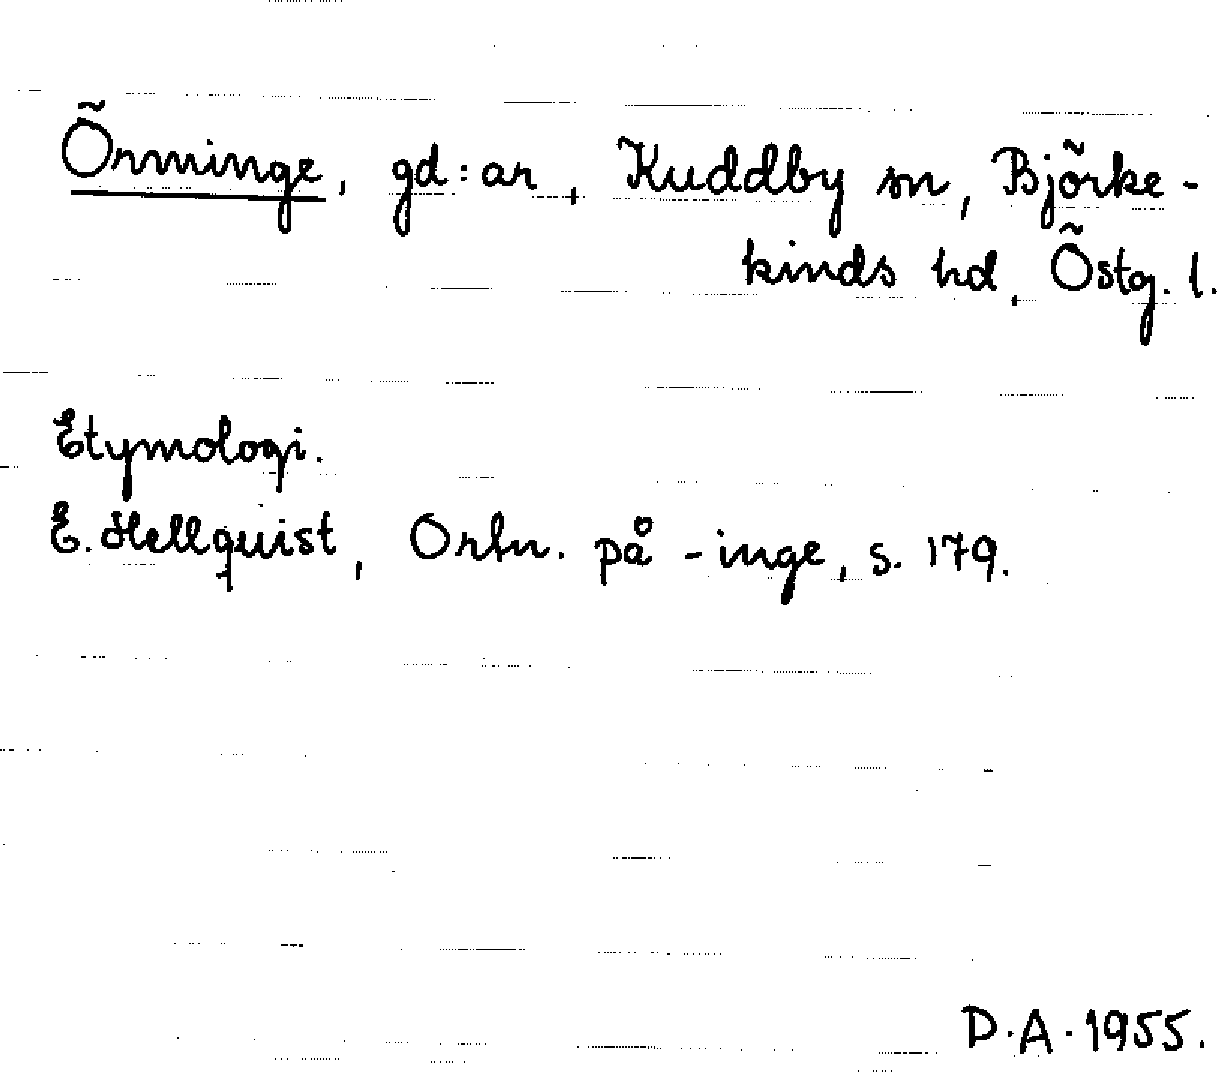 Örminge, gd:ar, Kuddby sn, Björke-
kinds hd, Östg. l.
Etymologi.
E. Hellquist, Ortn. på -inge, s. 179.
D.A. 1955.